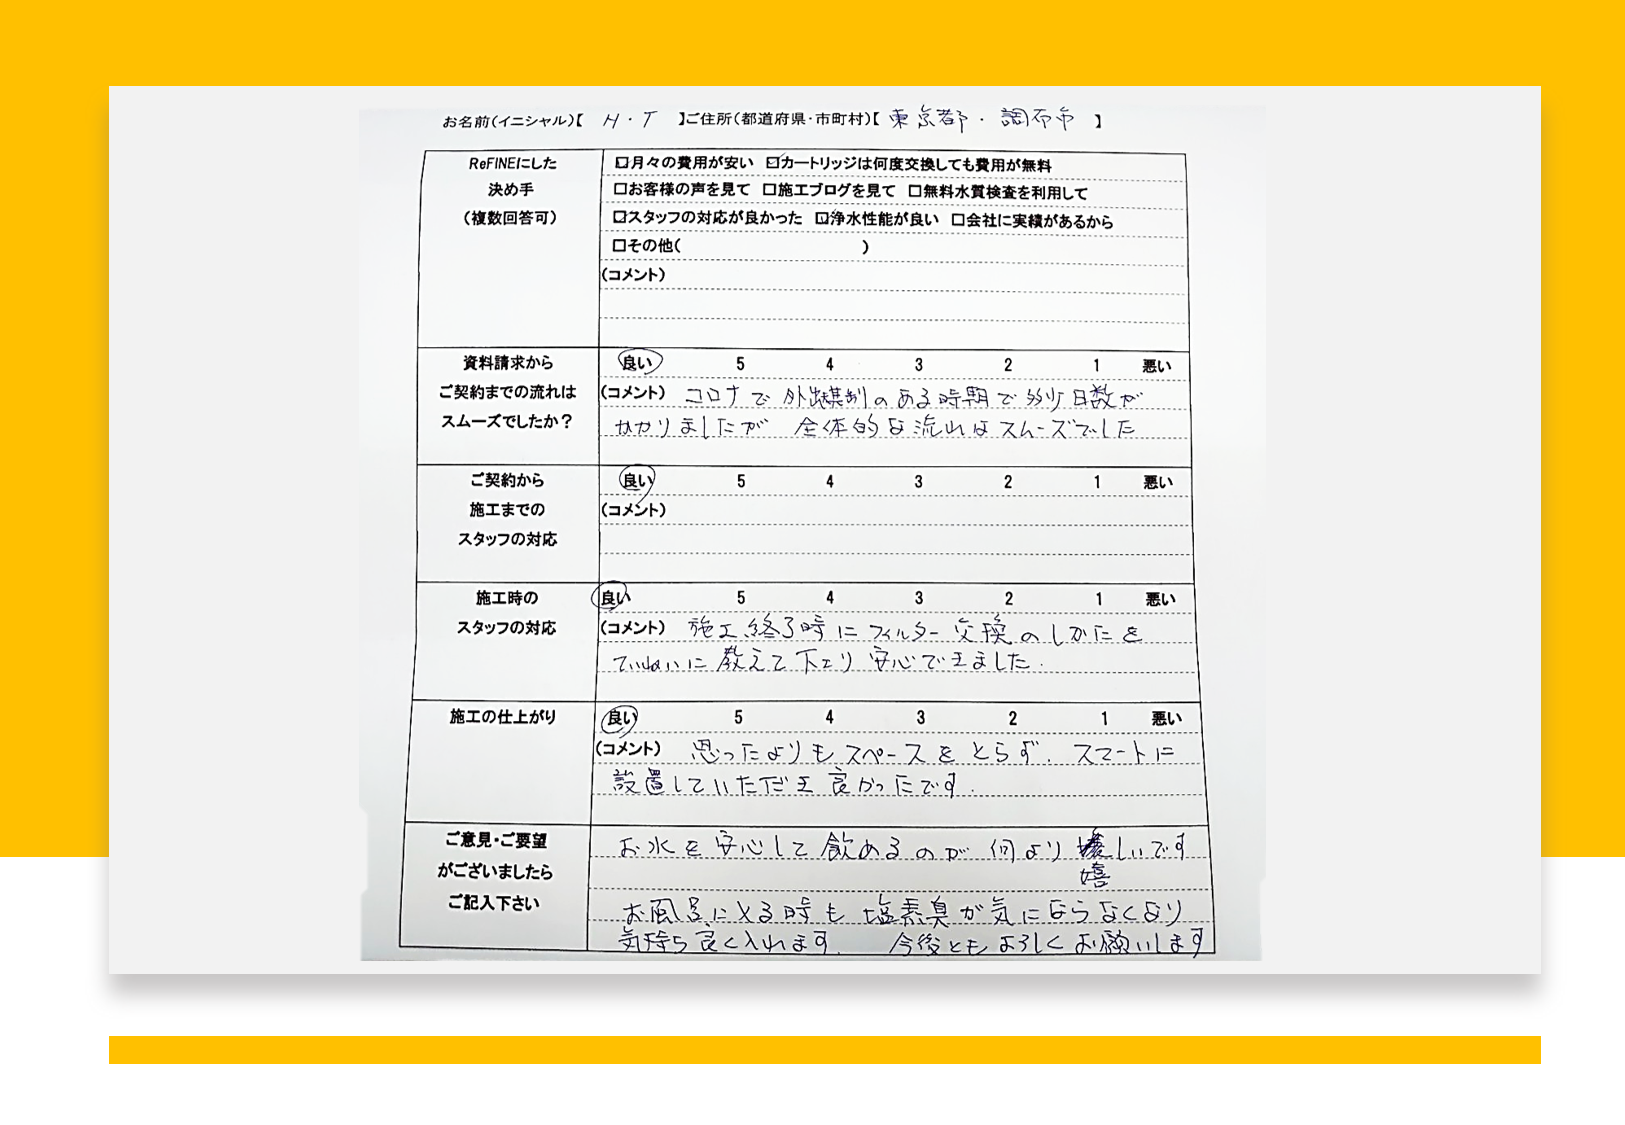 お名前(イニシャル)【 H・T 】ご住所(都道府県・市町村)【 東京都・調布市 】
ReFINEにした
決め手
(複数回答可)
口月々の費用が安い 口カートリッジは何度交換しても費用が無料
口お客様の声を見て 口施工ブログを見て 口無料水質検査を利用して
口スタッフの対応が良かった 口浄水性能が良い 口会社に実績があるから
口その他( )
(コメント)
資料請求から
ご契約までの流れは
スムーズでしたか?
良い 5 4 3 2 1 悪い
(コメント) コロナで外出規制のある時期で多少日数が
かかりましたが 全体的な流れはスムーズでした
ご契約から
施工までの
スタッフの対応
良い 5 4 3 2 1 悪い
(コメント)
施工時の
スタッフの対応
良い 5 4 3 2 1 悪い
(コメント) 施工終了時にフィルター交換のしかたを
ていねいに教えて下さり 安心できました.
施工の仕上がり
良い 5 4 3 2 1 悪い
(コメント) 思ったよりもスペースをとらず. スマートに
設置していただき良かったです.
ご意見・ご要望
がございましたら
ご記入下さい
お水を安心して飲めるのが 何より しいです
嬉
お風呂に入る時も塩素臭が気にならなくなり
気持ち良く入れます. 今後ともよろしくお願いします